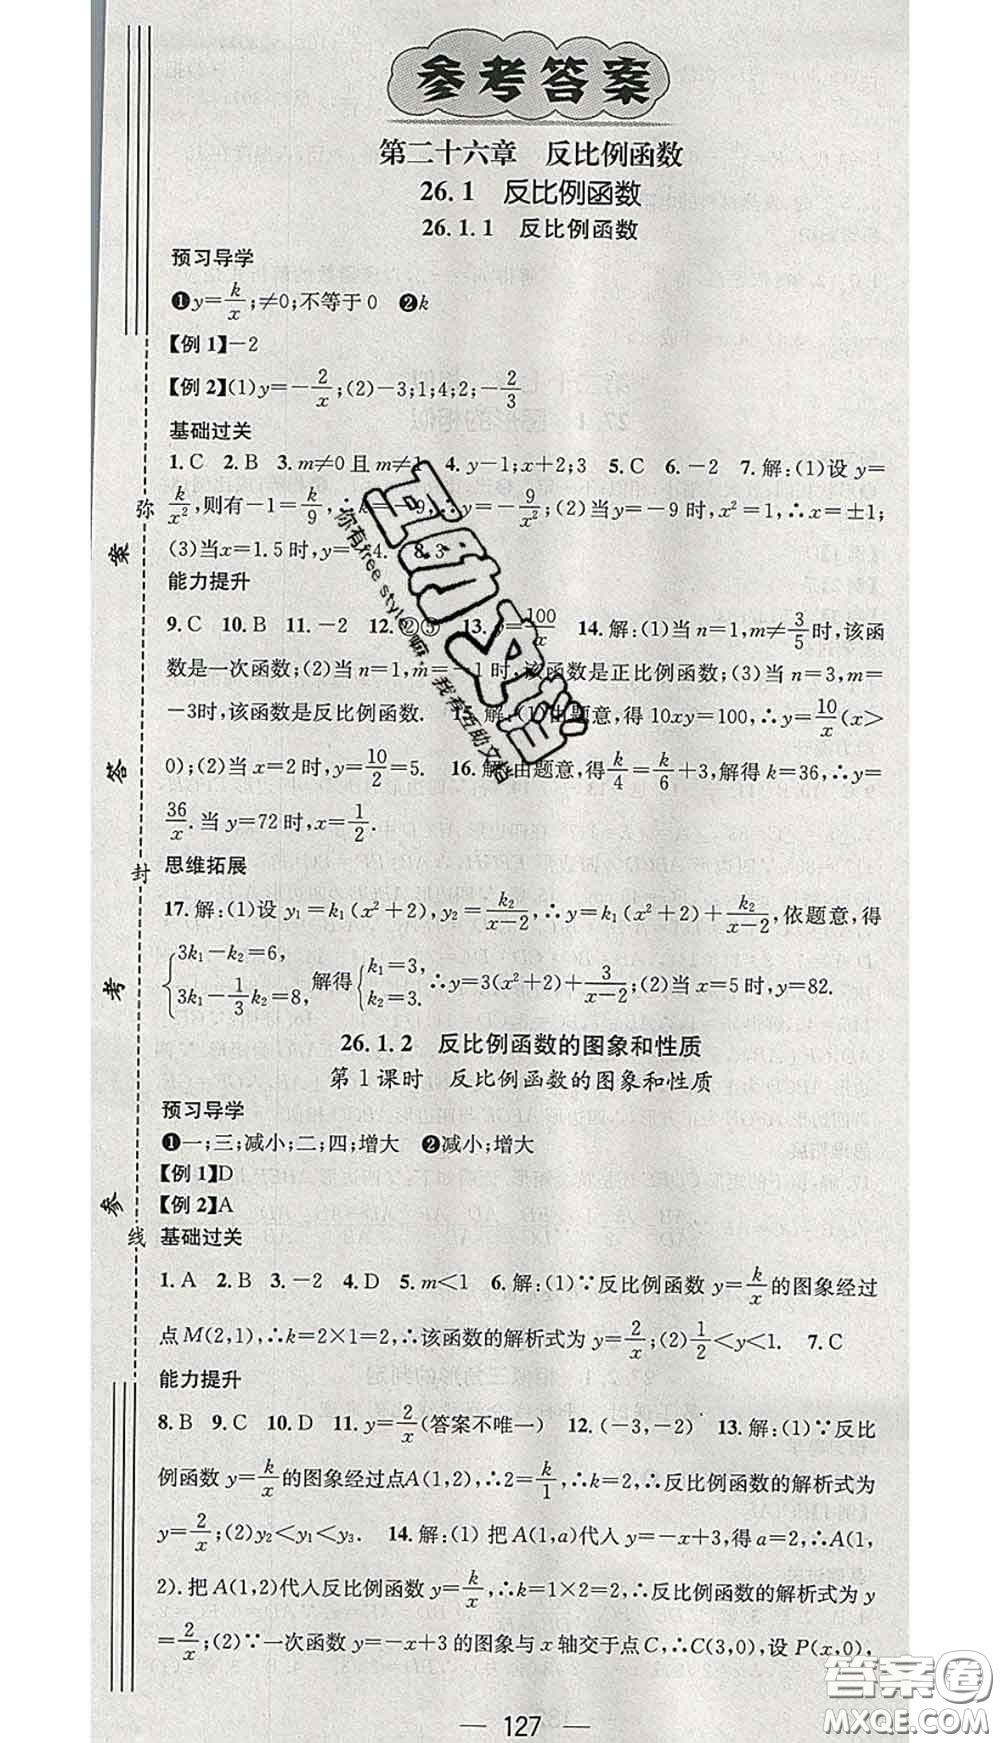 参考答案
第二十六章 反比例函数
26.1 反比例函数
26.1.1 反比例函数
预习导学
❶y=k/x;≠0;不等于0 ❷k
【例1】-2
【例2】(1)y=-2/x;(2)-3;1;4;2;-2/3
基础过关
1.C 2.B 3.m≠0且m≠1 4.y-1;x+2;3 5.C 6.-2 7.解:(1)设y=
k/x²,则有-1=k/9,∴k=-9,∴y=-9/x²;(2)当y=-9时,x²=1,∴x=±1;
(3)当x=1.5时,y=-4. 8.3
能力提升
9.C 10.B 11.-2 12.②⑤ 13. =100/x 14.解:(1)当n=1,m≠3/5时,该函
数是一次函数;(2)当n=1,m=-1时,该函数是正比例函数;(3)当n=3,m=
-3时,该函数是反比例函数. 15.解:(1)由题意,得10xy=100,∴y=10/x(x>
0);(2)当x=2时,y=10/2=5. 16.解:由题意,得k/4=k/6+3,解得k=36,∴y=
36/x.当y=72时,x=1/2.
思维拓展
17.解:(1)设y₁=k₁(x²+2),y₂=k₂/(x-2),∴y=k₁(x²+2)+k₂/(x-2),依题意,得
{3k₁-k₂=6, 3k₁-1/3k₂=8, 解得{k₁=3, k₂=3. ∴y=3(x²+2)+3/(x-2);(2)当x=5时,y=82.
26.1.2 反比例函数的图象和性质
第1课时 反比例函数的图象和性质
预习导学
❶一;三;减小;二;四;增大 ❷减小;增大
【例1】D
【例2】A
基础过关
1.A 2.B 3.-2 4.D 5.m<1 6.解:(1)∵反比例函数y=k/x的图象经过
点M(2,1),∴k=2×1=2,∴该函数的解析式为y=2/x;(2)1/2<y<1. 7.C
能力提升
8.B 9.C 10.D 11.y=2/x(答案不唯一) 12.(-3,-2) 13.解:(1)∵反比
例函数y=k/x的图象经过点A(1,2),∴2=k/1,∴k=2,∴反比例函数的解析式为
y=2/x;(2)y₂<y₁<y₃. 14.解:(1)把A(1,a)代入y=-x+3,得a=2,∴A(1,
2).把A(1,2)代入反比例函数y=k/x,∴k=1×2=2,∴反比例函数的解析式为y
=2/x;(2)∵一次函数y=-x+3的图象与x轴交于点C,∴C(3,0),设P(x,0),
— 127 —
弥
封
线
参考答案
互助文档
你有free style嘛 我有互助文档
答案圈
MXQE.COM